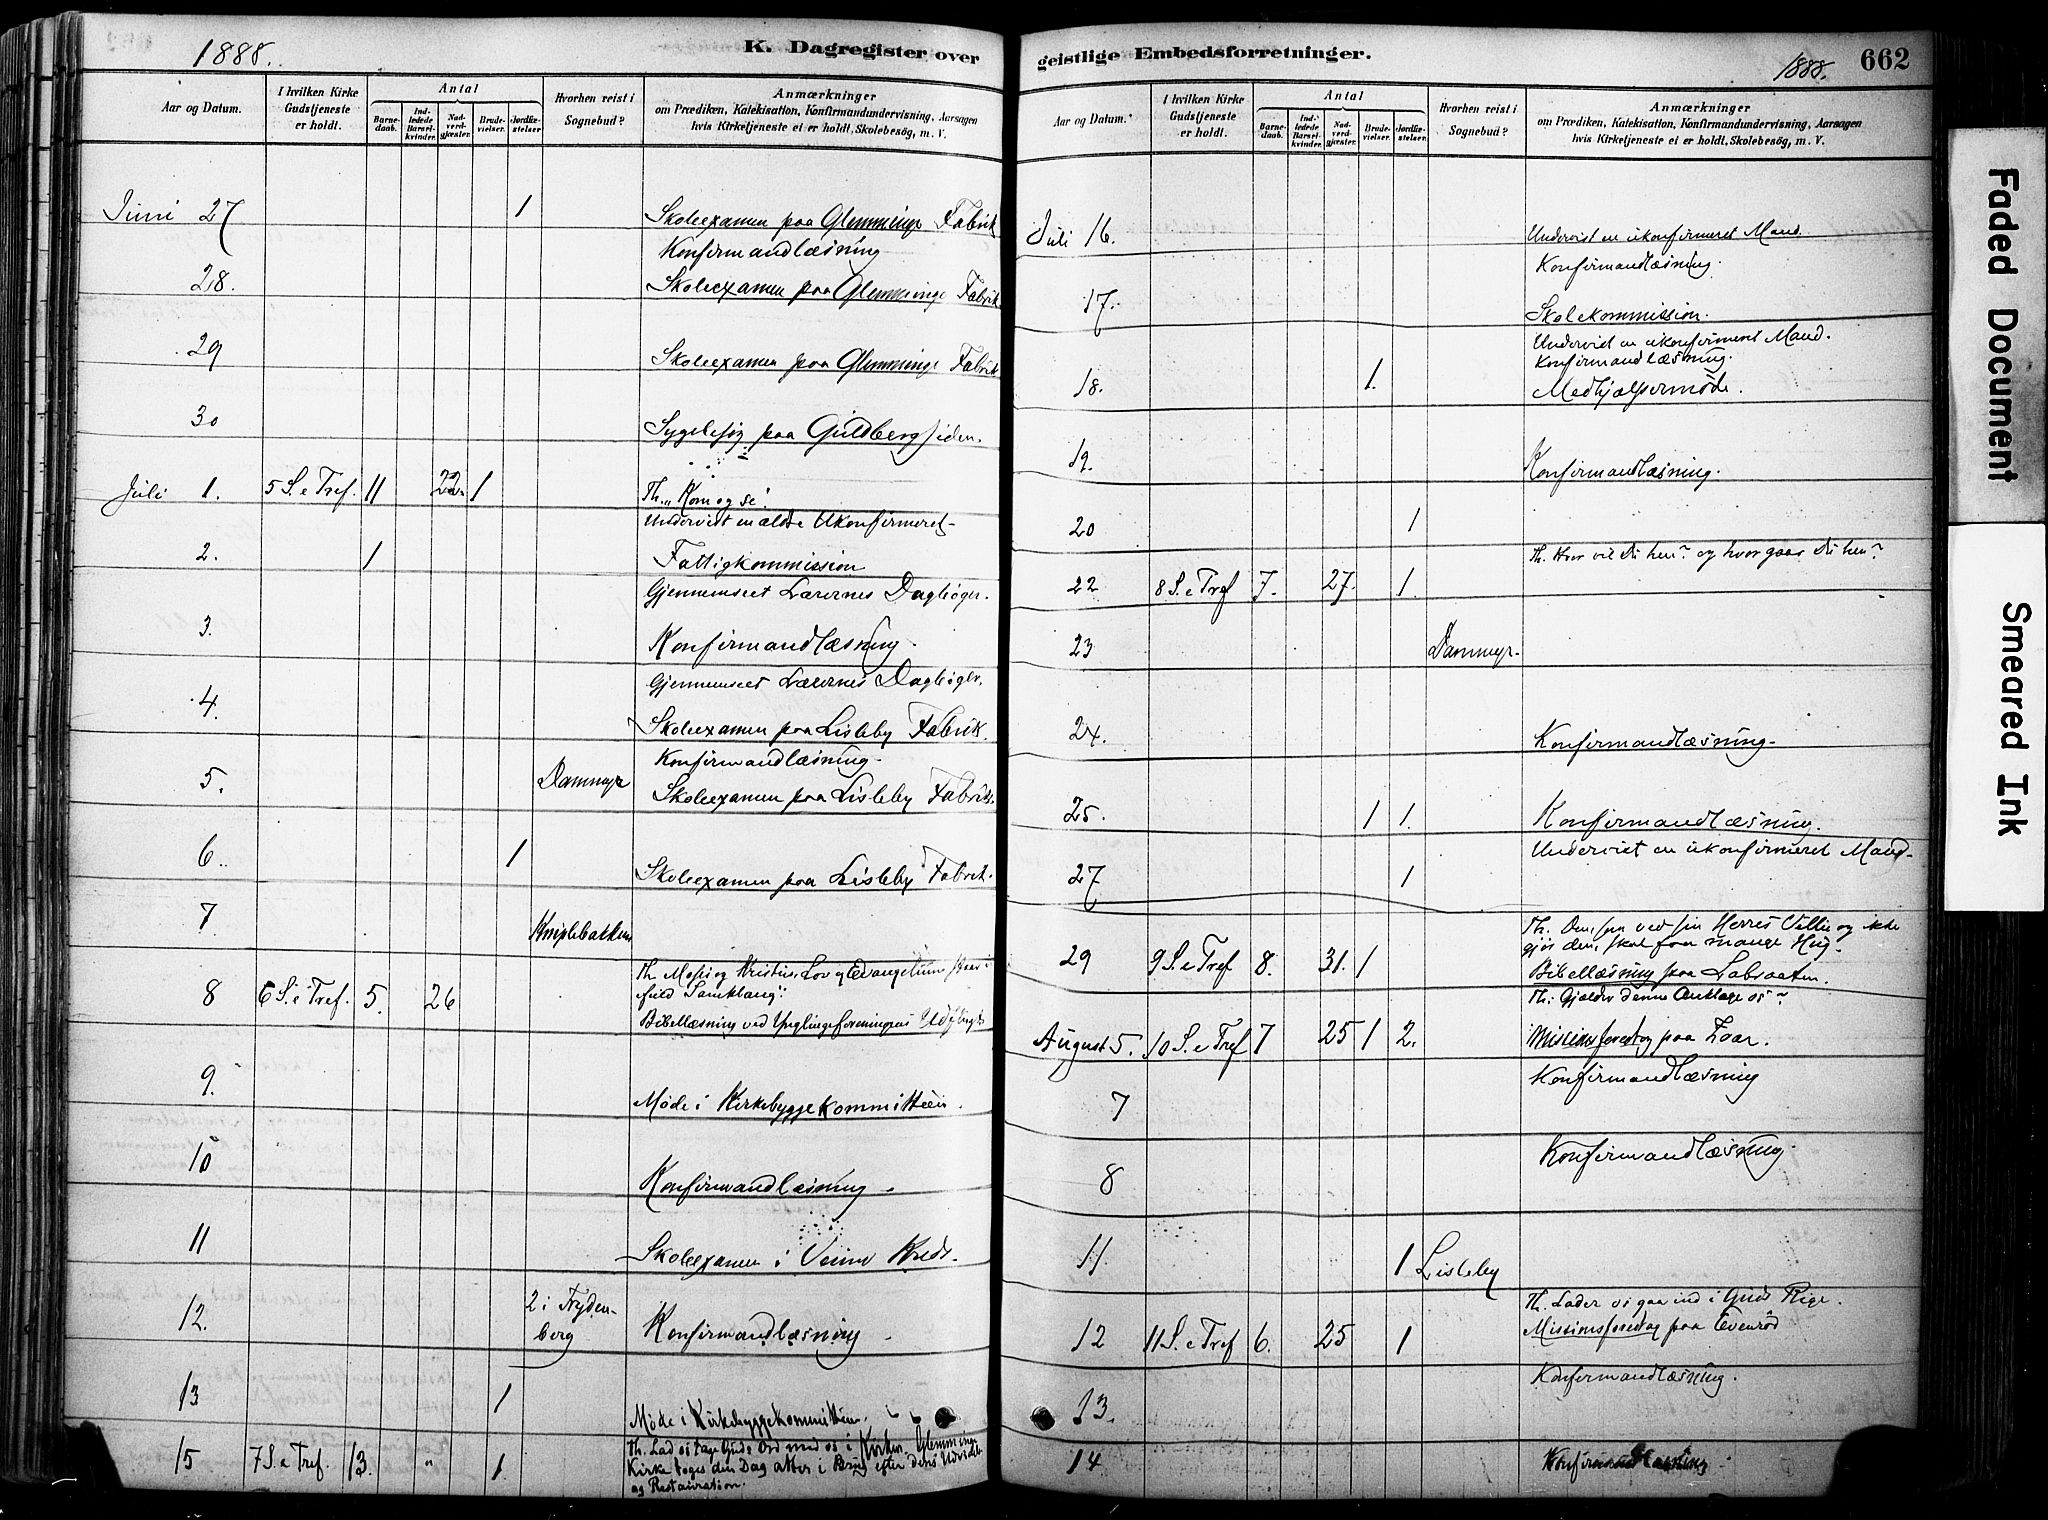 1888. K. Dagregister over
Aar og Datum. I hvilken Kirke Gudstjeneste er holdt. Antal Barnedaab. Indledede Barselkvinder. Nadverdgjæster. Brudevielser. Jordfæstelser. Hvorhen reist i Sognebud? Anmærkninger om Prædiken, Katekisation, Konfirmandundervisning, Aarsagen hvis Kirketjeneste ei er holdt, Skolebesög, m. V.
Juni 27 1 Skoleexamen paa Glemminge Fabrik
Konfirmandlæsning
28. Skoleexamen paa Glemminge Fabrik.
29 Skoleexamen paa Glemminge Fabrik
30 Sygebesøg paa Guldbergsiden.
Juli 1. 5 S. e Tref. 11 22. 1 Th. "Kom og se!
Undervist en ældre Ukonfirmeret
2. 1 Fattigkommission
Gjennemseet Lærernes Dagbøger.
3. Konfirmandlæsning.
Gjennemseet Lærernes Dagbøger.
4. Skoleexamen paa Lisleby Fabrik.
Konfirmandlæsning.
5. Dammyr Skoleexamen paa Lisleby Fabrik.
6.. 1 Skoleexamen paa Lisleby Fabrik.
7. Kniplebakken
Th. Moses og Kristus, Lov og Evangelium
8 6 S. e Tref. 5. 26
Bibellæsning ved Ynglingeforeningens
9. Møde i Kirkebyggekommitteen.
10 Konfirmandlæsning.
11 Skoleexamen i Veum Kreds.
12. 2 i Frydenberg Konfirmandlæsning.
13 1 Møde i Kirkebyggekommitteen.
15 7 S. e Tref. 13. " 1. Th. Lad os tage Guds Ord med os i Kirken. Glemminge
Kirke toges den Dag atter i Brug efter dens Udvidelse
og Restauration.
geistlige Embedsforretninger. 1888. 662
Aar og Datum. I hvilken Kirke Gudstjeneste er holdt. Antal Barnedaab. Indledede Barselkvinder. Nadverdgjæster. Brudevielser. Jordfæstelser. Hvorhen reist i Sognebud? Anmærkninger om Prædiken, Katekisation, Konfirmandundervisning, Aarsagen hvis Kirketjeneste ei er holdt, Skolebesög, m. V.
Juli 16. Undervist en ukonfirmeret Mand.
Konfirmandlæsning.
17. Skolekommission.
Undervist en ukonfirmeret Mand.
Konfirmandlæsning.
18. 1. Medhjælpermøde.
19. Konfirmandlæsning.
20 1
Th. Hvor vil Du hen? og hvor gaar Du hen?
22 8 S. e Tref 7. 27. 1.
23 Dammyr.
24. Konfirmandlæsning.
25. 1 1. Konfirmandlæsning.
Undervist en ukonfirmeret Mand.
27 1
Th. Den, som ved sin Herres Villie og ikke
gjør den, skal faa mange Hug.
29 9 S. e Tref 8. 31. 1 Bibellæsning paa Labraaten.
Th: Gjælder denne Anklage os?
August 5. 10 S. e Tref 7 25 1 2. Missionsforedrag paa Zoar.
Konfirmandlæsning
7
Konfirmandlæsning.
8
11. 1 Lisleby
Th. Lader os gaa ind i Guds Rige.
12 11 S. e Tref 6. 25 1 Missionsforedrag paa Evenrød
Konfirmandlæsning.
13.
14 Konfirmandlæsning.
Faded Document
Smeared Ink